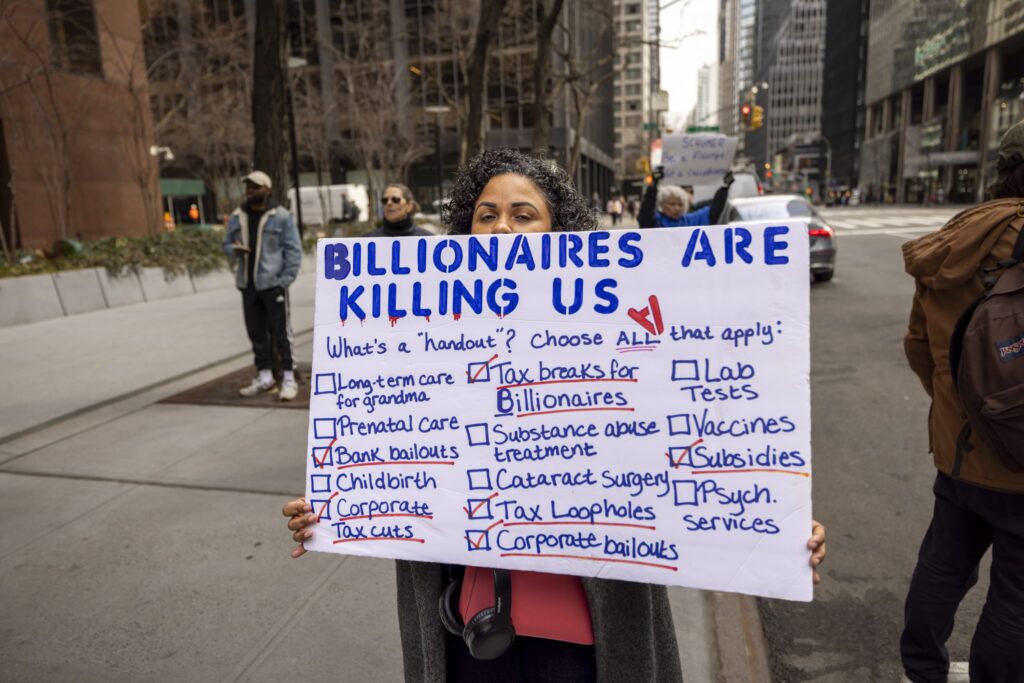 BILLIONAIRES ARE
KILLING US
What's a "handout"? Choose ALL that apply:
Long-term care
for grandma
Prenatal Care
Bank bailouts
Childbirth
Corporate
Tax cuts
Tax breaks for
Billionaires
Substance abuse
treatment
Cataract Surgery
Tax Loopholes
Corporate bailouts
Lab
Tests
Vaccines
Subsidies
Psych.
services
SCHUMER
Be a FIGHTER
JANSPORT